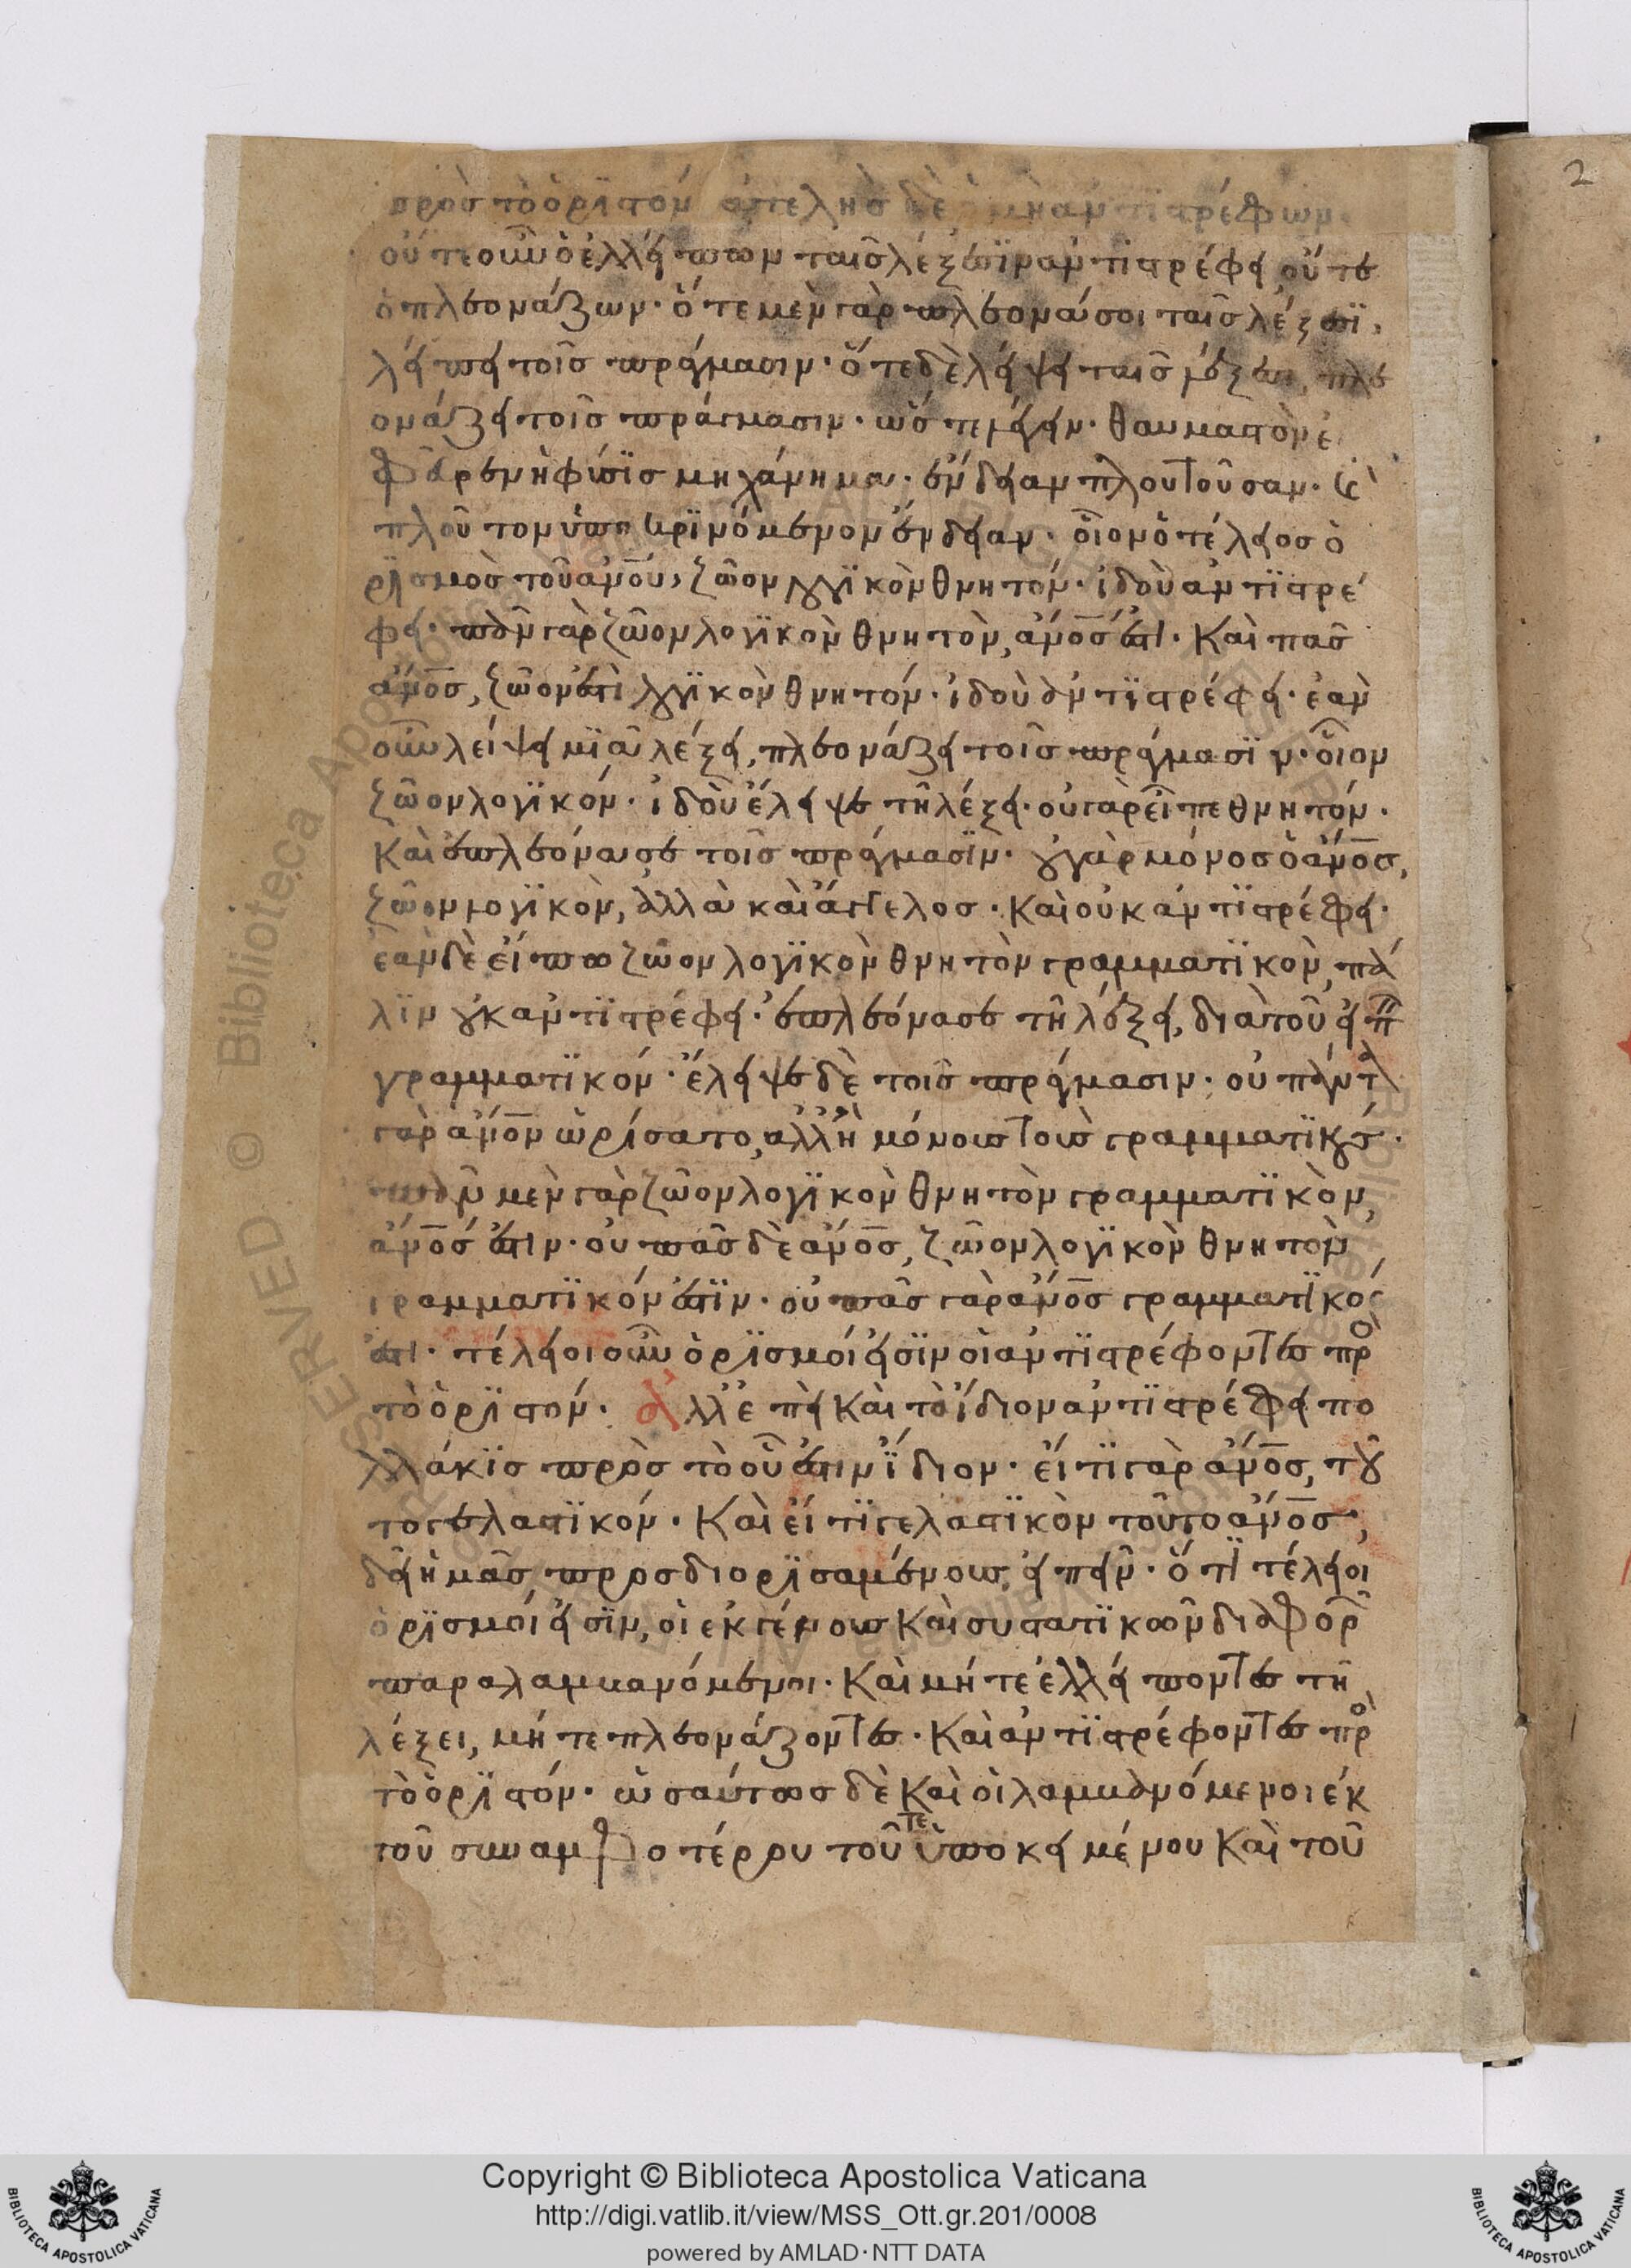 πρὸς τὸ ὁριστόν ἀτελὴς δὲ ὁ μὴ ἀντιστρέφων
οὔτε οὖν ὁ ἐλλείπων ταῖς λέξεσιν ἀντιστρέφει, οὔτε
ὁ πλεονάζων· ὅτε μὲν γὰρ πλεονάσοι ταῖς λέξεσι,
λείπει τοῖς πράγμασιν· ὅτε δὲ λείψει ταῖς λέξεσι, πλε
ονάζει τοῖς πράγμασιν· ὥσπερ θαυμαστὸν ἐ
φεῦρεν ἡ φύσις μηχάνημα· ἔνδειαν πλουτοῦσαν· καὶ
πλοῦτον ὑποκρινόμενον ἔνδειαν· οἷον ὁ τέλειος ὁ
ρισμὸς τοῦ ἀν̅ου̅, ζῶον λογικὸν θνητόν· ἰδοὺ ἀντιστρέ
φει· πᾶν γὰρ ζῶον λογικὸν θνητὸν, ἄν̅ο̅ς ἐστι· Καὶ πᾶς
ἄν̅ο̅ς, ζῶον ἐστὶ λογικὸν θνητόν· ἰδοὺ ἀντιστρέφει· ἐὰν
οὖν λείψει μιᾶ λέξει, πλεονάζει τοῖς πράγμασιν· οἷον
ζῶον λογικόν· ἰδοὺ ἔλειψε τῆ λέξει· οὐ γὰρ εἶπε θνητόν·
Καὶ ἐπλεόνασε τοῖς πράγμασιν· οὐ γὰρ μόνος ὁ ἄν̅ο̅ς,
ζῶον λογικὸν, ἀλλὰ καὶ ἄγγελος· Καὶ οὐκ ἀντιστρέφει·
ἐὰν δὲ εἴπω ζῶον λογικὸν θνητὸν γραμματικὸν, πά
λιν οὐκ ἀντιστρέφει· ἐπλεόνασε τῆ λέξει, διὰ τοῦ εἰπεῖν
γραμματικόν· ἔλειψε δὲ τοῖς πράγμασιν· οὐ πάντα
γὰρ ἄν̅ο̅ν ὡρίσατο, ἀλλ' ἢ μόνους τοὺς γραμματικούς·
πᾶν μὲν γὰρ ζῶον λογικὸν θνητὸν γραμματικὸν,
ἄν̅ο̅ς ἐστιν· οὐ πᾶς δὲ ἄν̅ο̅ς, ζῶον λογικὸν θνητὸν
γραμματικόν ἐστιν· οὐ πᾶς γὰρ ἄν̅ο̅ς γραμματικός
ἐστι· τέλειοι οὖν ὁρισμοί εἰσιν οἱ ἀντιστρέφοντες πρὸς
τὸ ὁριστόν· Ἀλλ' ἐπεὶ Καὶ τὸ ἴδιον ἀντιστρέφει πο
λλάκις πρὸς τὸ οὗ ἐστιν ἴδιον· εἴ τι γὰρ ἄν̅ο̅ς, τοῦ
το γελαστικόν· Καὶ εἴ τι γελαστικὸν τοῦτο ἄν̅ο̅ς·,
δεῖ ἡμᾶς προσδιορισαμένους εἰπεῖν· ὅτι τέλειοι
ὁρισμοί εἰσιν, οἱ ἐκ γένους Καὶ συστατικῶν διαφορῶν
παραλαμβανόμενοι· Καὶ μήτε ἐλλείποντες τῆ
λέξει, μήτε πλεονάζοντες· Καὶ ἀντιστρέφοντες πρὸς
τὸ ὁριστόν· ὡσαύτως δὲ Καὶ οἱ λαμβανόμενοι ἐκ
τοῦ συναμφοτέρου τοῦ τε ὑποκειμένου Καὶ τοῦ
2
Copyright © Biblioteca Apostolica Vaticana
http://digi.vatlib.it/view/MSS_Ott.gr.201/0008
powered by AMLAD·NTT DATA
BIBLIOTECA APOSTOLICA VATICANA
BIBLIOTECA APOSTOLICA VATICANA